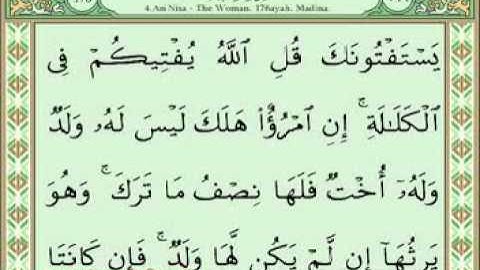 4.An Nisa - The Woman. 176ayah. Madina
يَسْتَفْتُونَكَ قُلِ ٱللَّهُ يُفْتِيكُمْ فِى
ٱلْكَلَـٰلَةِ ۚ إِنِ ٱمْرُؤٌا۟ هَلَكَ لَيْسَ لَهُۥ وَلَدٌ
وَلَهُۥٓ أُخْتٌ فَلَهَا نِصْفُ مَا تَرَكَ ۚ وَهُوَ
يَرِثُهَآ إِن لَّمْ يَكُن لَّهَا وَلَدٌ ۚ فَإِن كَانَتَا